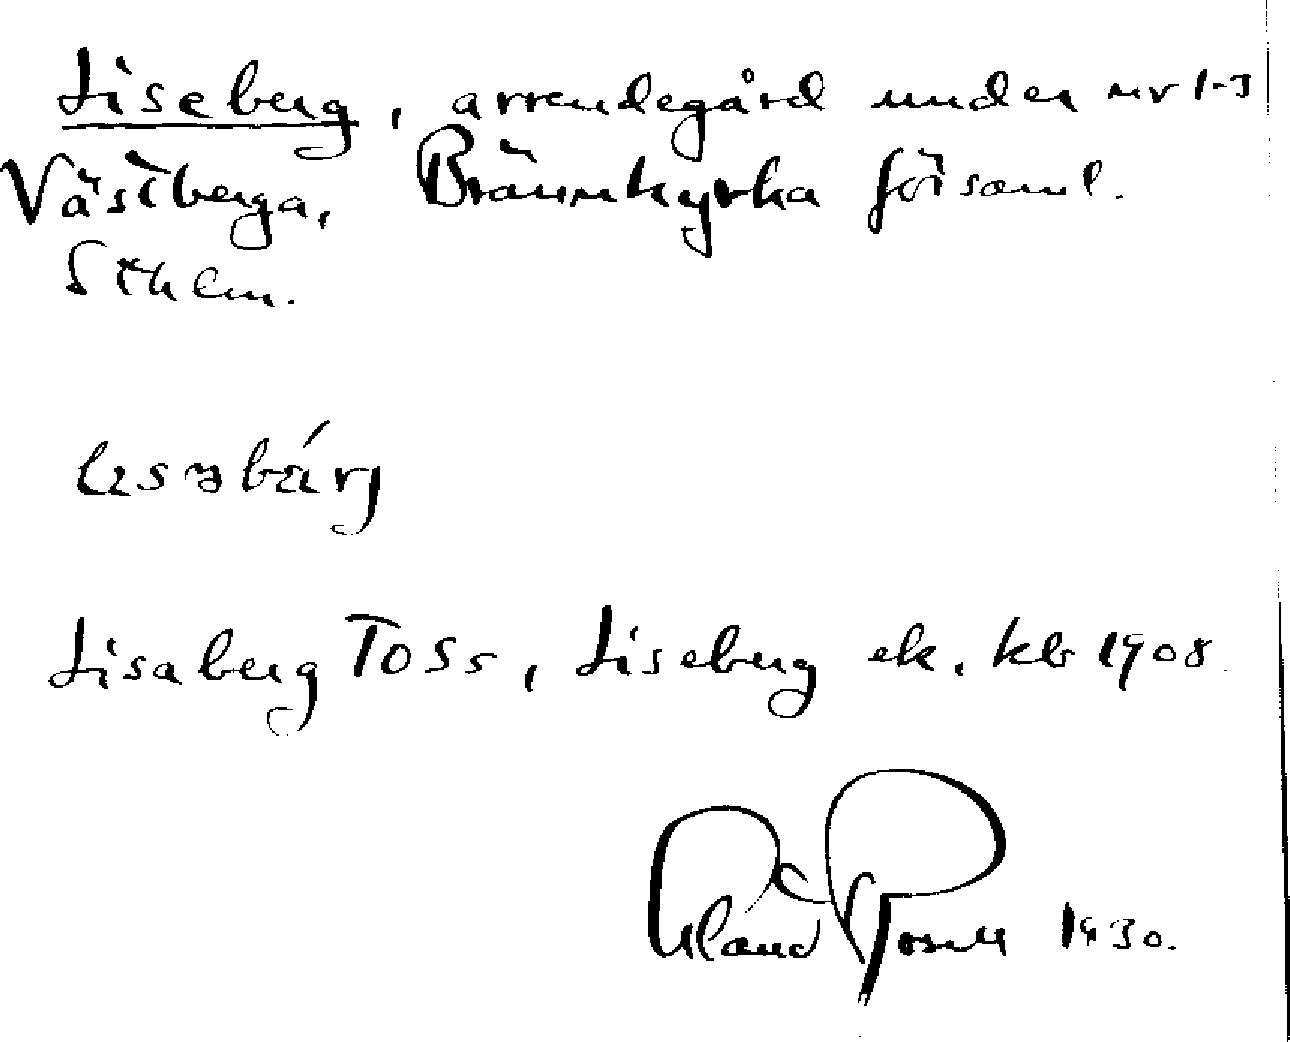 Liseberg, arrendegård under nr 1-3
Västberga, Brännkyrka församl.
Sthlm.
Lisaberg TOSs, Liseberg ek. kb 1908.
1930.